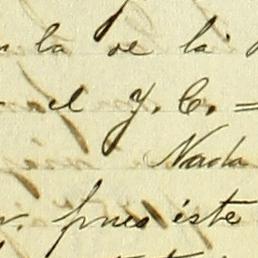 la de la
el Y. C. =
Nada
pues éste